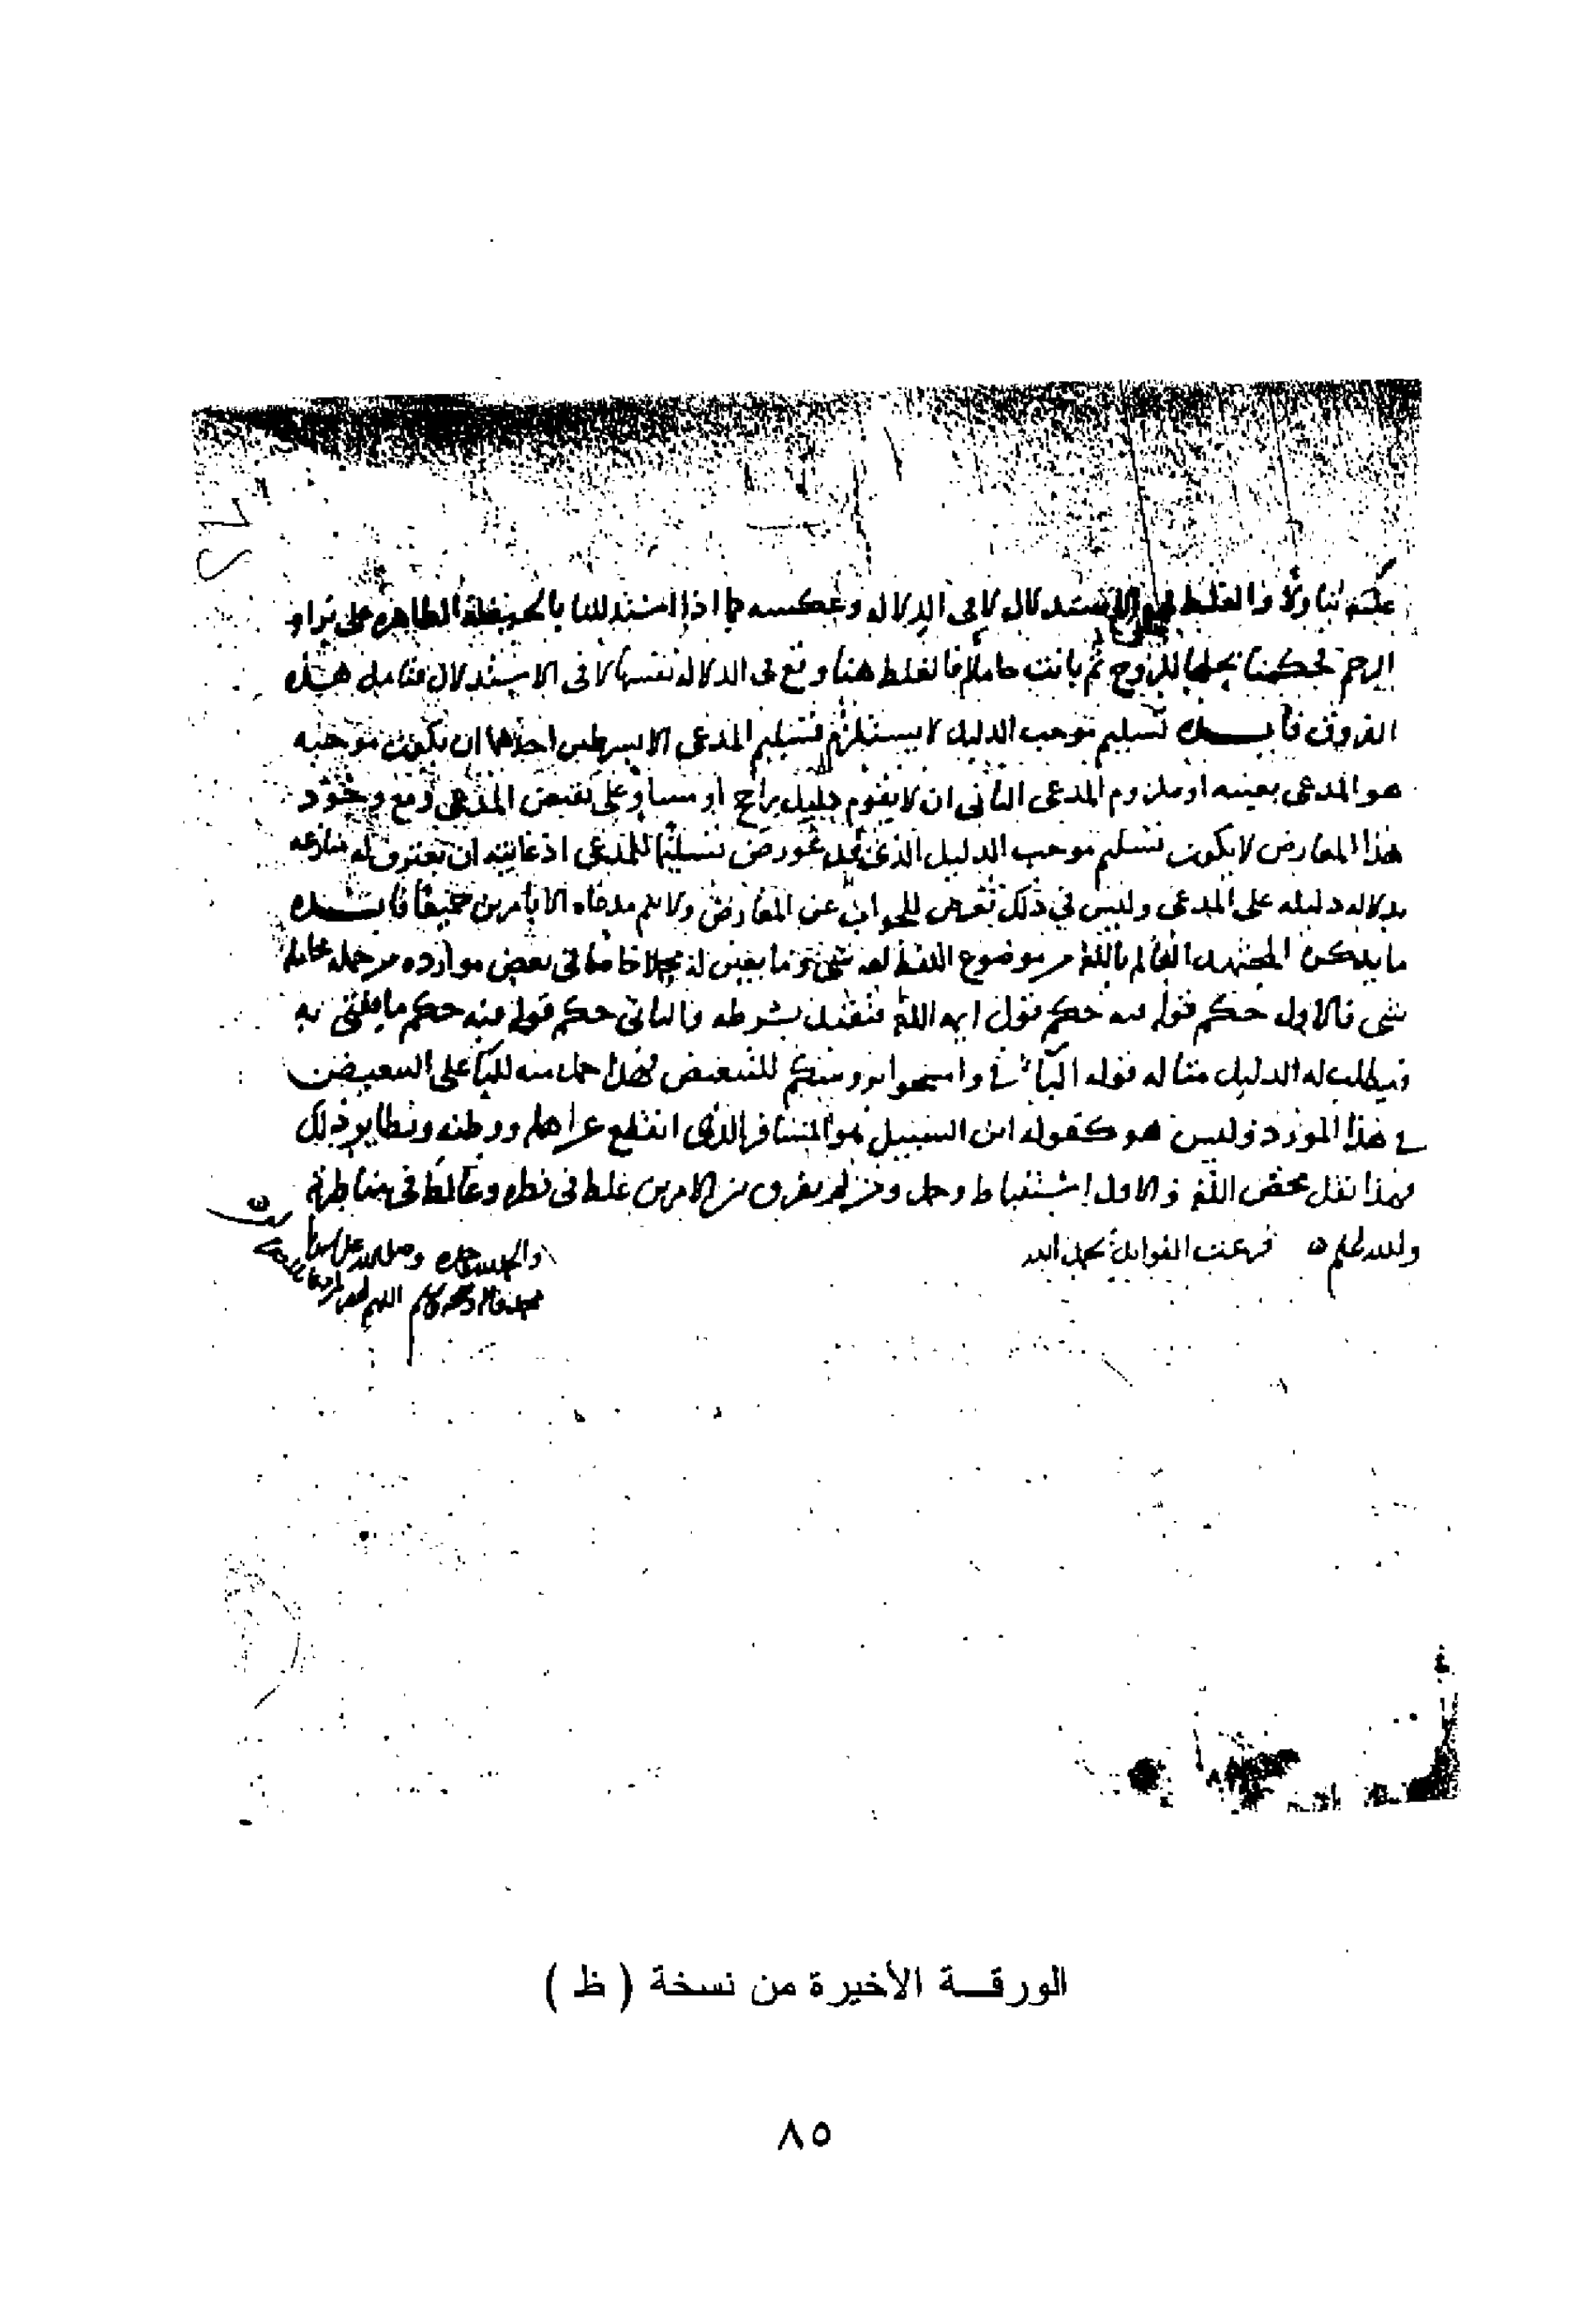 علته تناولا والغلط في الاستدلال لا في الدلاله وعكسه كما اذا استدللنا بالحيضة الظاهره على براه
الرحم فحكمنا بحلها للزوج ثم بانت حاملا فالغلط هنا وقع في الدلاله نفسها لا في الاستدلال فتامل هذه
الفروق فايده تسليم موجب الدليل لا يستلزم تسليم المدعى الا بشرطين احدهما ان يكون موجبه
هو المدعى بعينه او ملزوم المدعى الثاني ان لا يقوم دليل راجح او مساو على نقيض المدعى ومع وجود
هذا المعارض لا يكون تسليم موجب الدليل الذي قد عورض تسليما للمدعى اذ غايته ان يعترف له منازعه
بدلاله دليله على المدعى وليس في ذلك تعرض للجواب عن المعارض ولا يتم مدعاه الا بامرين جميعا فايده
ما يدركه المجتهد العالم باللغه من موضوع اللفظ لغه شي وما يعين له محملا خاصا في بعض موارده من جمله محامله
شي فالاول حكم قوله فيه حكم قول ايمه اللغه فيقبل بشرطه والثاني حكم قوله فيه حكم ما يفتي به
فيطلب له الدليل مثاله قوله الباء في وامسحوا بروسكم للتبعيض فهذا حمل منه للباء على التبعيض
في هذا المورد وليس هو كقوله ابن السبيل هو المسافر الذي انقطع عن اهله ووطنه ونظاير ذلك
فهذا نقل محض اللغه والاول استنباط وحمل ومن لم يفرق بين الامرين غلط في نظره وغالط في مناظرته
والله اعلم فرغت الفوائد بحمد الله
والحمد لله وحده وصلى الله على سيدنا
محمد واله وصحبه وسلم اللهم
الورقــة الأخيرة من نسخة ( ظ )
٨٥